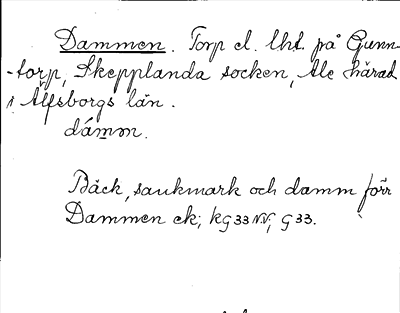 Dammen. Torp el. lht. på Gunn-
-torp, Skepplanda socken, Ale härad
i Älfsborgs län.
dámm.
Bäck, sankmark och damm förr
Dammen ek; kG33NV; G33.